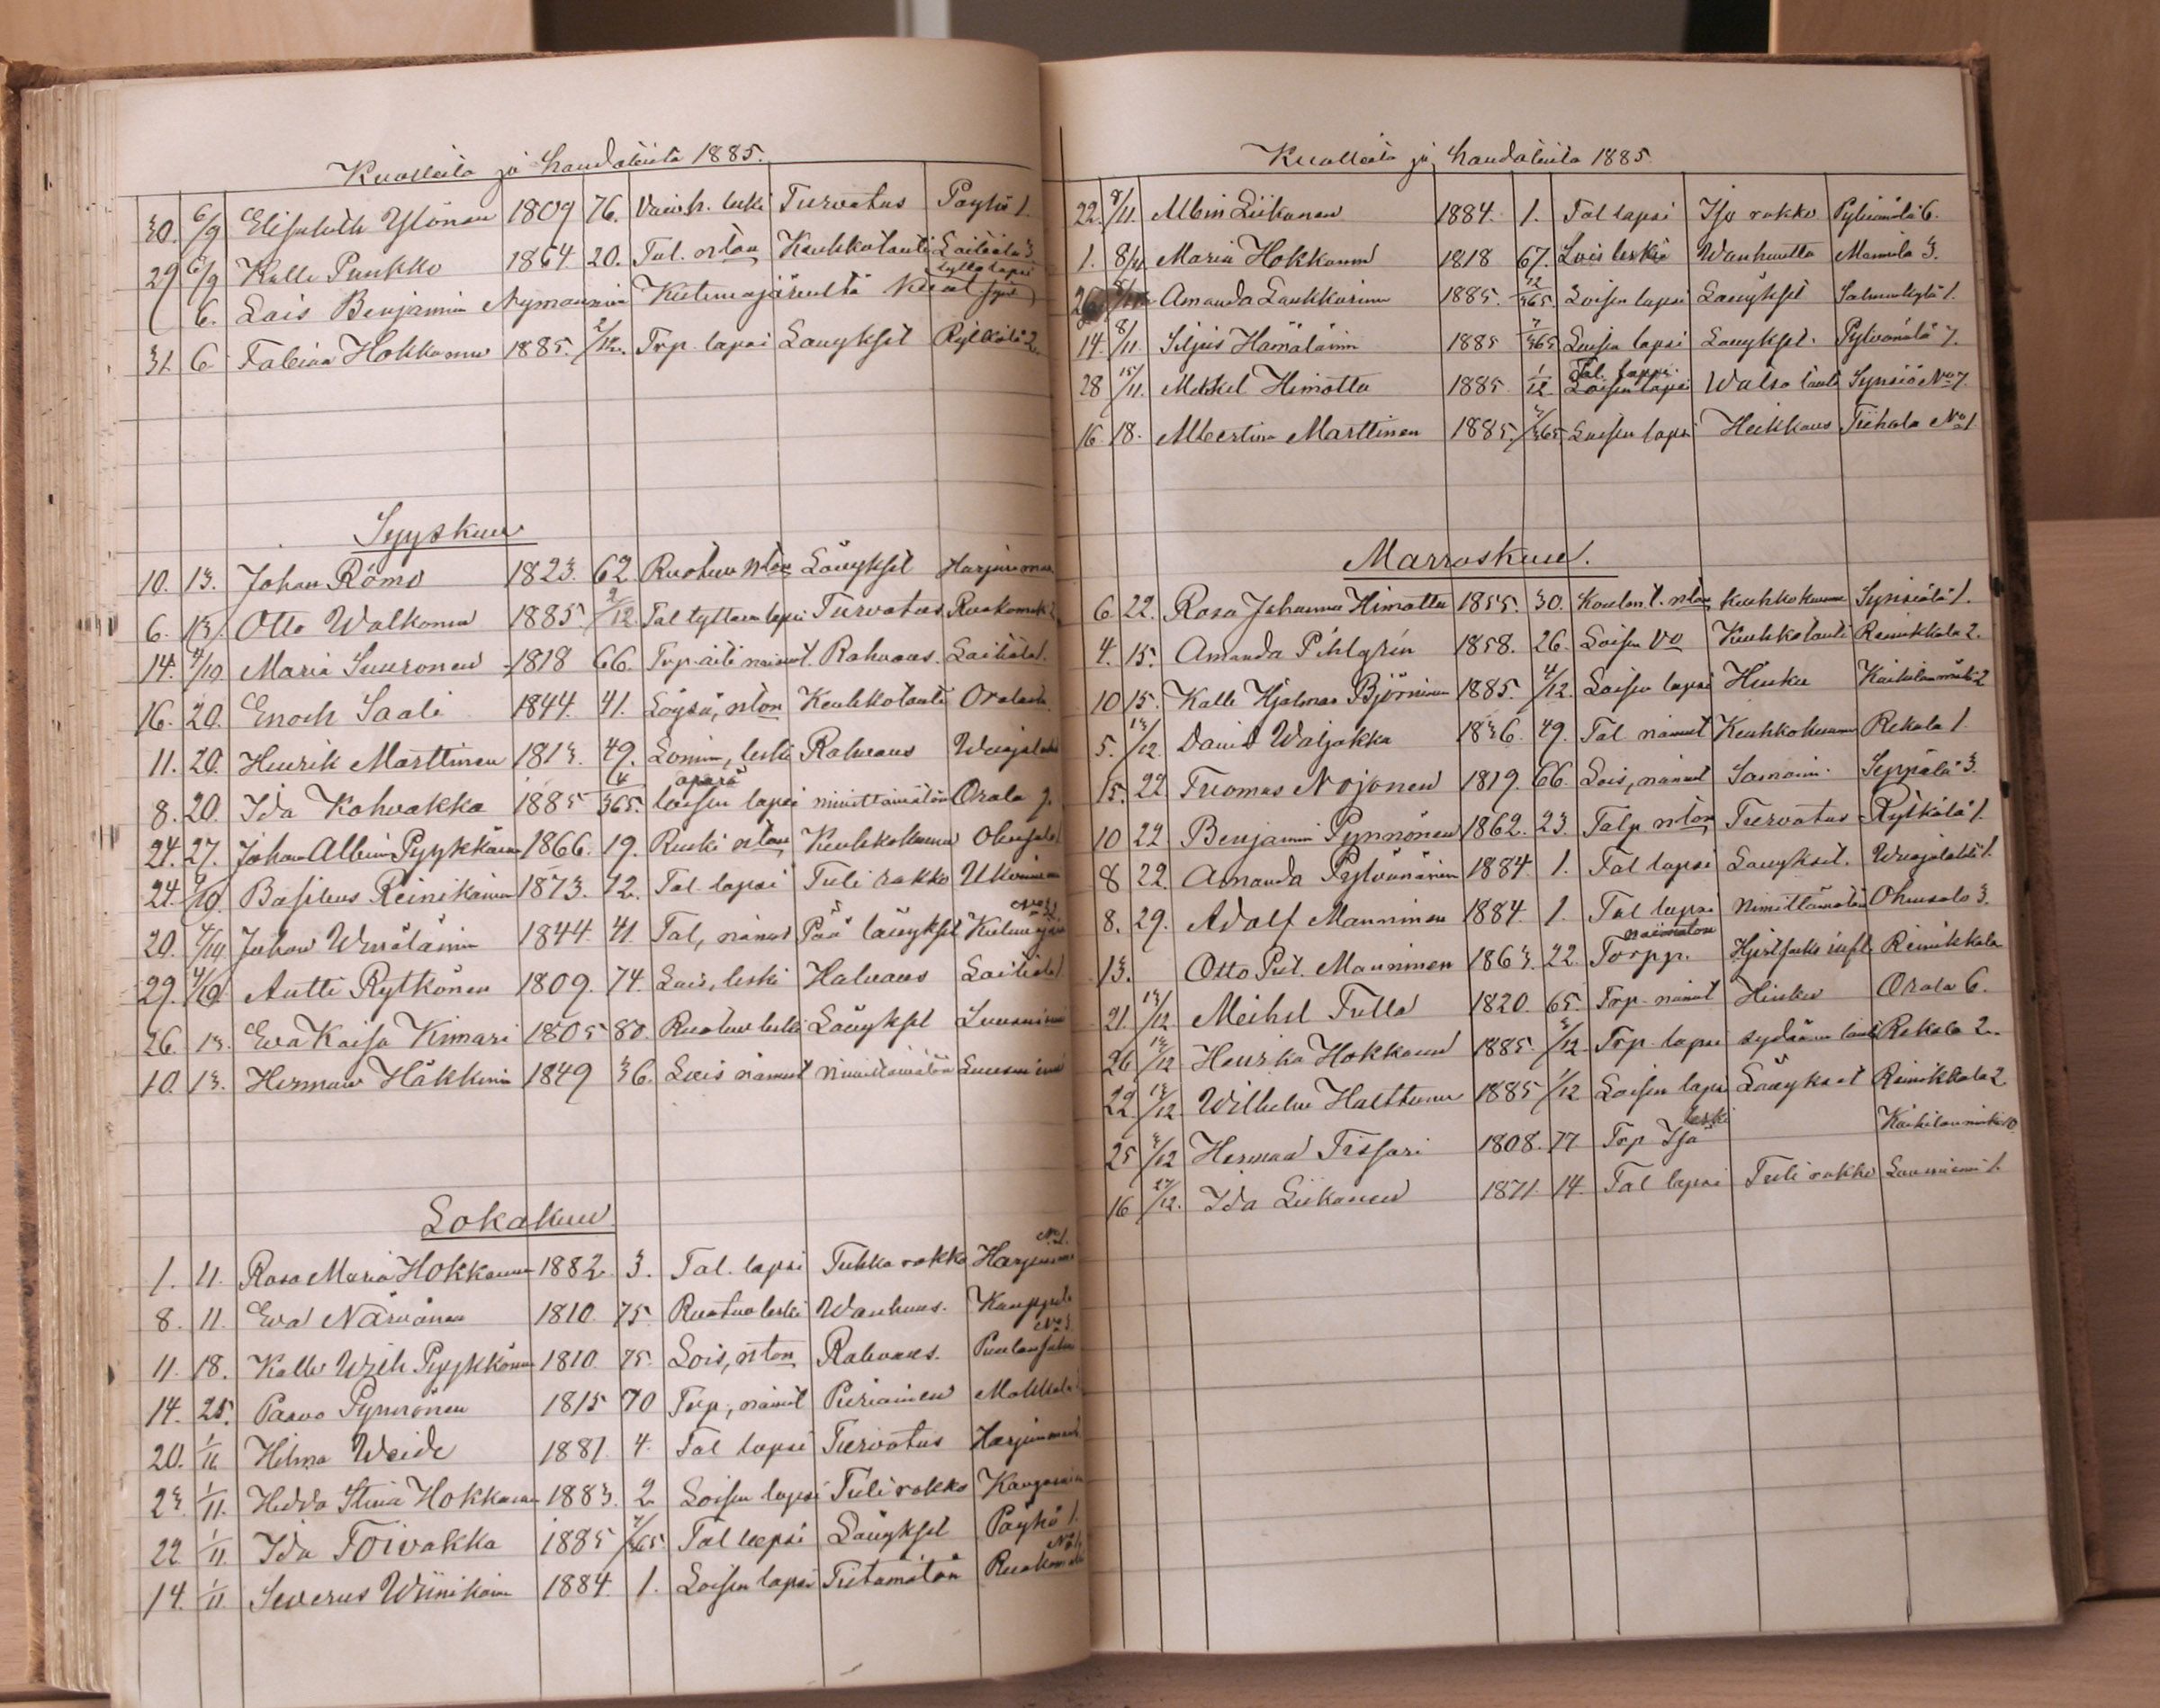 Kuolleita ja haudatuita 1885.
30. 6/9 Elisabeth Ylönen 1809 76. Vaivh. leski Turvotus Pöyhö 1.
29 6/9 Kalle Puukko 1864. 20. Tal. nton Keuhkotauti Laitiala 3
6. Lois Benjamin Nymannin Kutemajärveltä
31. 6. Fabian Hokkanen 1885. 2/12. Trp. lapsi Läuykset Rytkölä 2.
Syyskuu
10. 13. Johan Römö 1823. 62. Ruotuv. nton Läuykset Harjunmaa
6. 13. Otto Walkonen 1885. 2/12. Tal tyttären lapsi Turvotus Ruokomäki 2
14. 4/10 Maria Suuronen 1818 66. Trp. äiti nainut. Rahvaus. Laitiala 1.
16. 20. Enoch Saali 1844. 41. Löysä, nton Keuhkotauti Orala
11. 20. Henrik Marttinen 1813. 49. leski Rahvaus
8. 20. Ida Kohvakka 1885 4/365. loisen lapsi äpärä nimittämätön Orala 7.
24. 27. Johan Albin Pyykkönen 1866. 19. Renki nton Keuhkokuume Ohensalo
24. 4/10. Basilius Reinikainen 1873. 12. Tal lapsi Tuli rokko
20. 4/10 Juhan Wenäläinen 1844. 41. Tal, nainut Pää läuykset
29. 4/10 Antti Rytkönen 1809. 74. Lois, leski Halvaus Laitiala 1
26. 13. Eva Kaisa Kimari 1805 80. Ruotuv leski Läuykset
10. 13. Herman Häkkinen 1849 36. Lois nainut nimittämätön
Lokakuu
1. 11. Rosa Maria Hokkanen 1882. 3. Tal. lapsi Tuhka rokko Harjunmaa No 1.
8. 11. Eva Närvänen 1810. 75. Ruotuv leski Wanhuus. Kauppila
11. 18. Kalle Wilh Pyykkönen 1810. 75. Lois, nton Rahvaus. No 3.
14. 25. Paavo Pynnönen 1815 70 Trp, nainut Puriainen Makkola
20. 1/11. Hilma Weide 1881. 4. Tal lapsi Turvotus Harjunmaa
23. 1/11. Hedda Stina Hokkanen 1883. 2. Loisen lapsi Tuli rokko
22 1/11. Ida Toivakka 1885 7/365. Tal lapsi Läuykset Pöyhö 1.
14. 1/11. Severus Wiinikain 1884. 1. Loisen lapsi Tietämätön Ruokomäki
Kuolleita ja haudatuita 1885
22. 8/11. Albin Liikanen 1884. 1. Tal lapsi Iso rokko Pylvänälä 6.
1. 8/11 Maria Hokkanen 1818 67. Lois leski Wanhuutta Mannila 3.
26. Amanda Laukkarinen 1885. 12/365 Loisen lapsi Läuykset
14. 8/11. Siljus Hämäläinen 1885 7/365 Loisen lapsi Läuykset. Pylvänälä 7.
28 15/11. Mikkel Himotta 1885. 1/12 Tal. lapsi. Loisen lapsi Watsa tauti Synsiö No 7.
16. 18. Albertina Marttinen 1885. 2/365 Loisen lapsi Heikkous Tiihola No 1
Marraskuu.
6. 22. Rosa Johanna Himotta 1855. 30. nton Keuhkokuume Synsiälä 1.
4. 15. Amanda Pihlgrén 1858. 26. Loisen vo Keuhkotauti Reinikkala 2.
10 15. Kalle Hjalmar Björninen 1885. 4/12. Loisen lapsi Hinku Kaihilanmäki 2
5. 13/12 David Waljakka 1836. 49. Tal. nainut Keuhkokuume Rekola 1.
15. 22 Tuomas Nojonen 1819. 66. Lois, nainut Samoin. Seppälä 3.
10 22 Benjamin Pynnönen 1862. 23. Talp nton Turvotus Rytkölä 1.
8 22. Amanda Pylvänäinen 1884. 1. Tal lapsi Läuykset.
8. 29. Adolf Manninen 1884 1. Tal lapsi Nimittämätön Ohensalo 3.
13. Otto Pet. Manninen 1863. 22. Torpp. naimaton Reinikkala
21. 13/12 Meihel Tulla 1820. 65. Trp. nainut Hinku Orala 6.
26 13/12 Henrika Hokkanen 1885. 3/12. Trp. lapsi sydäm tauti Rekola 2.
22 13/12 Wilhelm Halttunen 1885 1/12 Loisen lapsi Läuykset Reinikkala 2
25 3/12 Herman Tissari 1808. 77 Trp Isä leski Kaihilanmäki 10
16 27/12. Ida Liikanen 1871. 14. Tal lapsi Tuli rokko